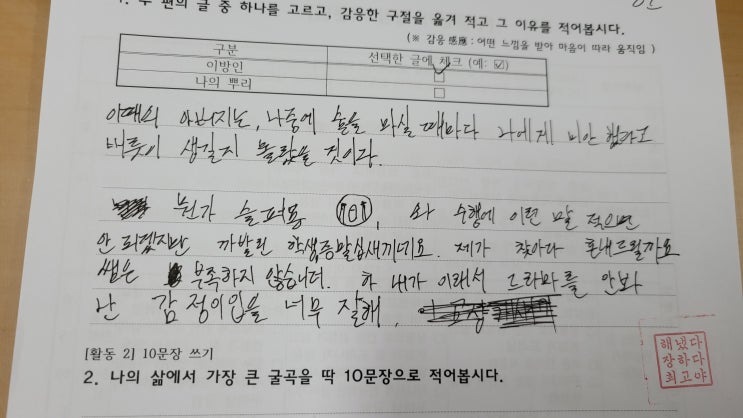 1. 두 편의 글 중 하나를 고르고, 감응한 구절을 옮겨 적고 그 이유를 적어봅시다.
(※ 감응感應 : 어떤 느낌을 받아 마음이 따라 움직임 )
구분 선택한 글에 체크 (예: ☑)
이방인 ☑
나의 뿌리 □
이때의 아버지는, 나중에 술을 마실 때마다 나에게 미안했다고
버릇이 생길지 몰랐을 것이다.
뭔가 슬퍼용, 와 수행에 이런 말 적으면
안 되겠지만 까발린 학생 정말 십새끼네요. 제가 찾아다 혼내드릴까요
쌤은 부족하지 않습니다. 하 내가 이래서 드라마를 안봐
난 감정이입을 너무 잘해,
[활동 2] 10문장 쓰기
2. 나의 삶에서 가장 큰 굴곡을 딱 10문장으로 적어봅시다.
해냈다
장하다
최고야